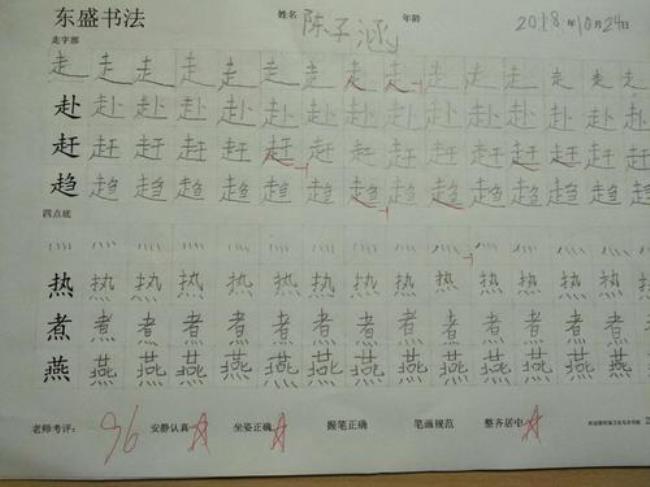 东盛书法 姓名 陈子涵 年龄 2018年10月24日
走字部
走走走走走走走走走走走走走走走
赴赴赴赴赴赴赴赴赴赴赴赴赴赴赴
赶赶赶赶赶赶赶赶赶赶赶赶赶赶赶
趋趋趋趋趋趋趋趋趋趋趋趋趋趋趋
四点底
灬灬灬灬灬灬灬灬灬灬灬灬灬灬灬
热热热热热热热热热热热热热热热
煮煮煮煮煮煮煮煮煮煮煮煮煮煮煮
燕燕燕燕燕燕燕燕燕燕燕燕燕燕燕
老师考评: 96 安静认真 坐姿正确 握笔正确 笔画规范 整齐居中